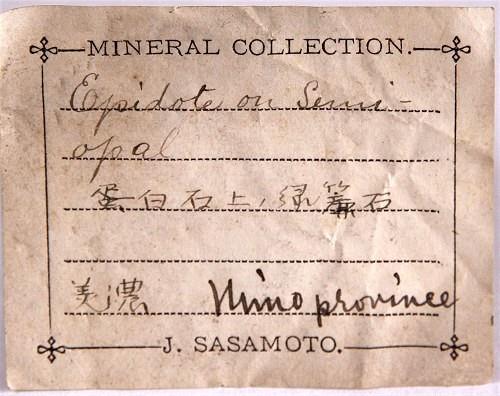 MINERAL COLLECTION.
Epidote on Semi-
opal
蛋白石上ノ緑簾石
美濃 Mino province
J. SASAMOTO.